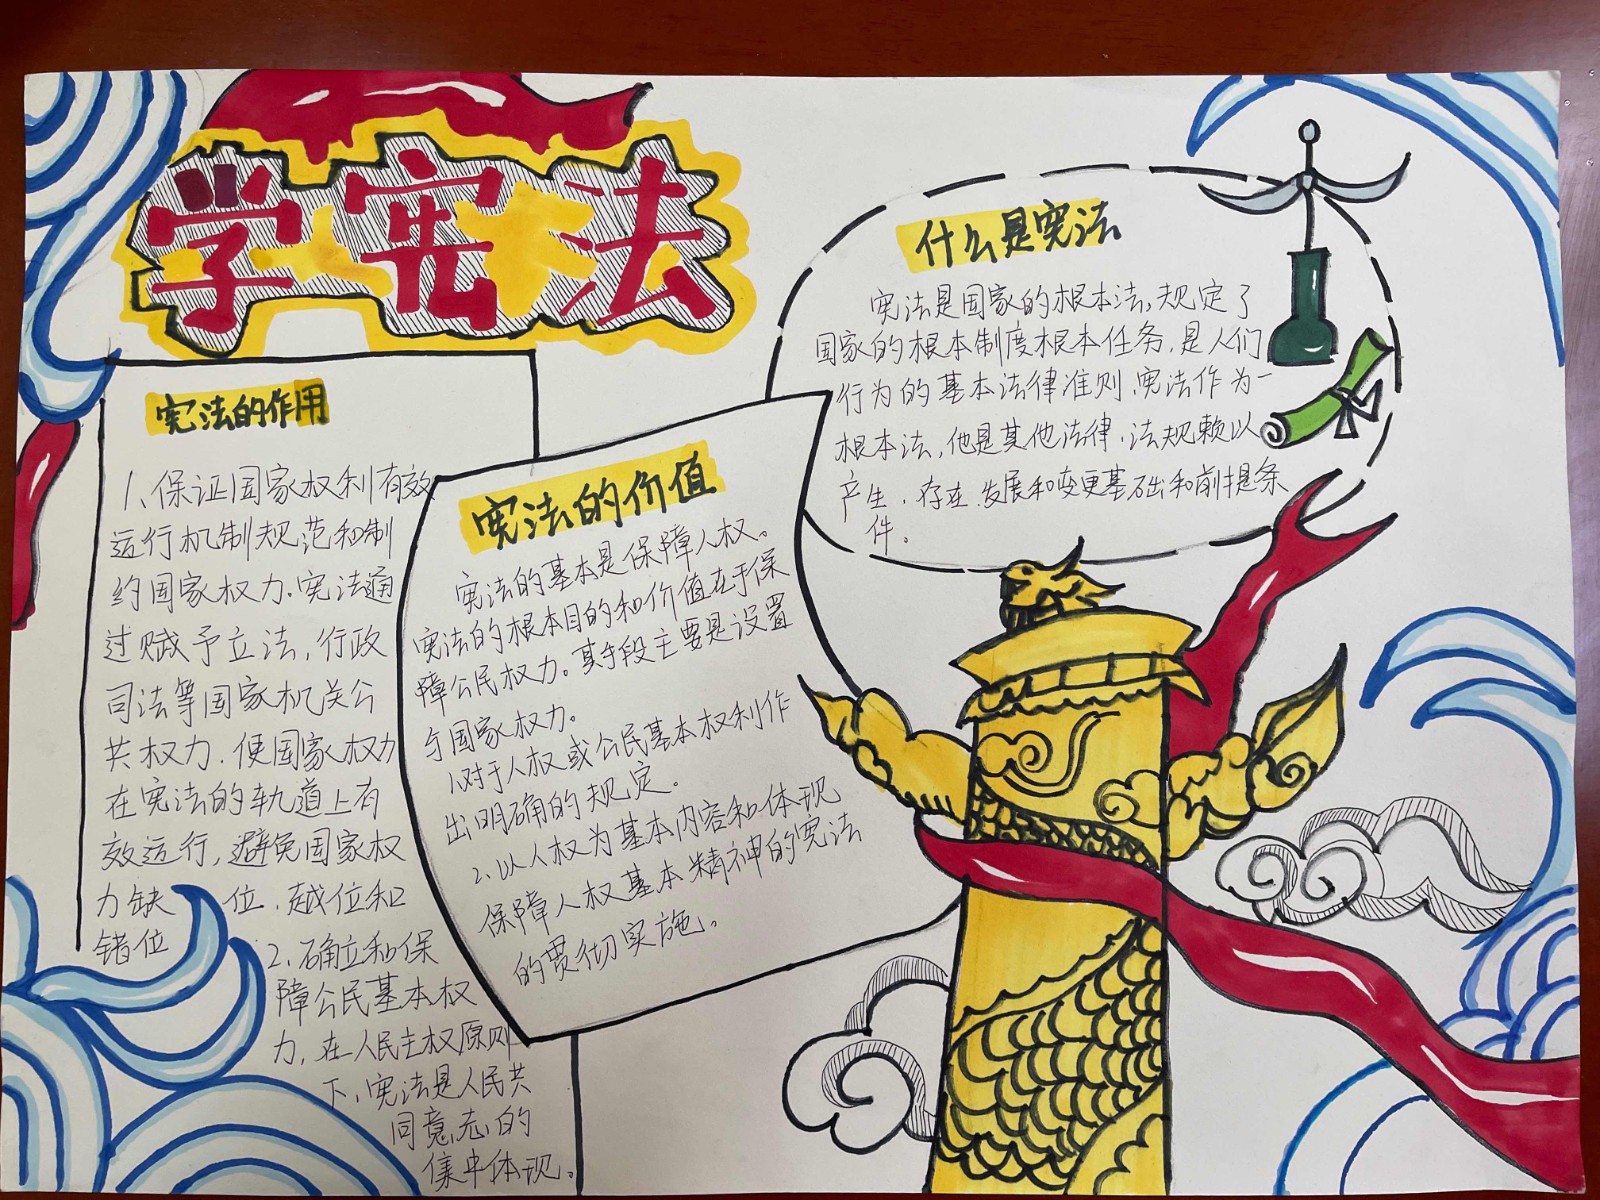 学宪法
宪法的作用
1、保证国家权利有效
运行机制规范和制
约国家权力.宪法通
过赋予立法,行政
司法等国家机关公
共权力.使国家权力
在宪法的轨道上有
效运行,避免国家权
力缺 位.越位和
错位
2.确立和保
障公民基本权
力,在人民主权原则
下,宪法是人民共
同意志的
集中体现。
宪法的价值
宪法的基本是保障人权。
宪法的根本目的和价值在于保
障公民权力。其手段主要是设置
与国家权力。
1.对于人权或公民基本权利作
出明确的规定。
2.以人权为基本内容和体现
保障人权基本精神的宪法
的贯彻实施。
什么是宪法
宪法是国家的根本法,规定了
国家的根本制度根本任务.是人们
行为的基本法律准则.宪法作为一
根本法,他是其他法律.法规赖以
产生.存在.发展和变更基础和前提条
件。